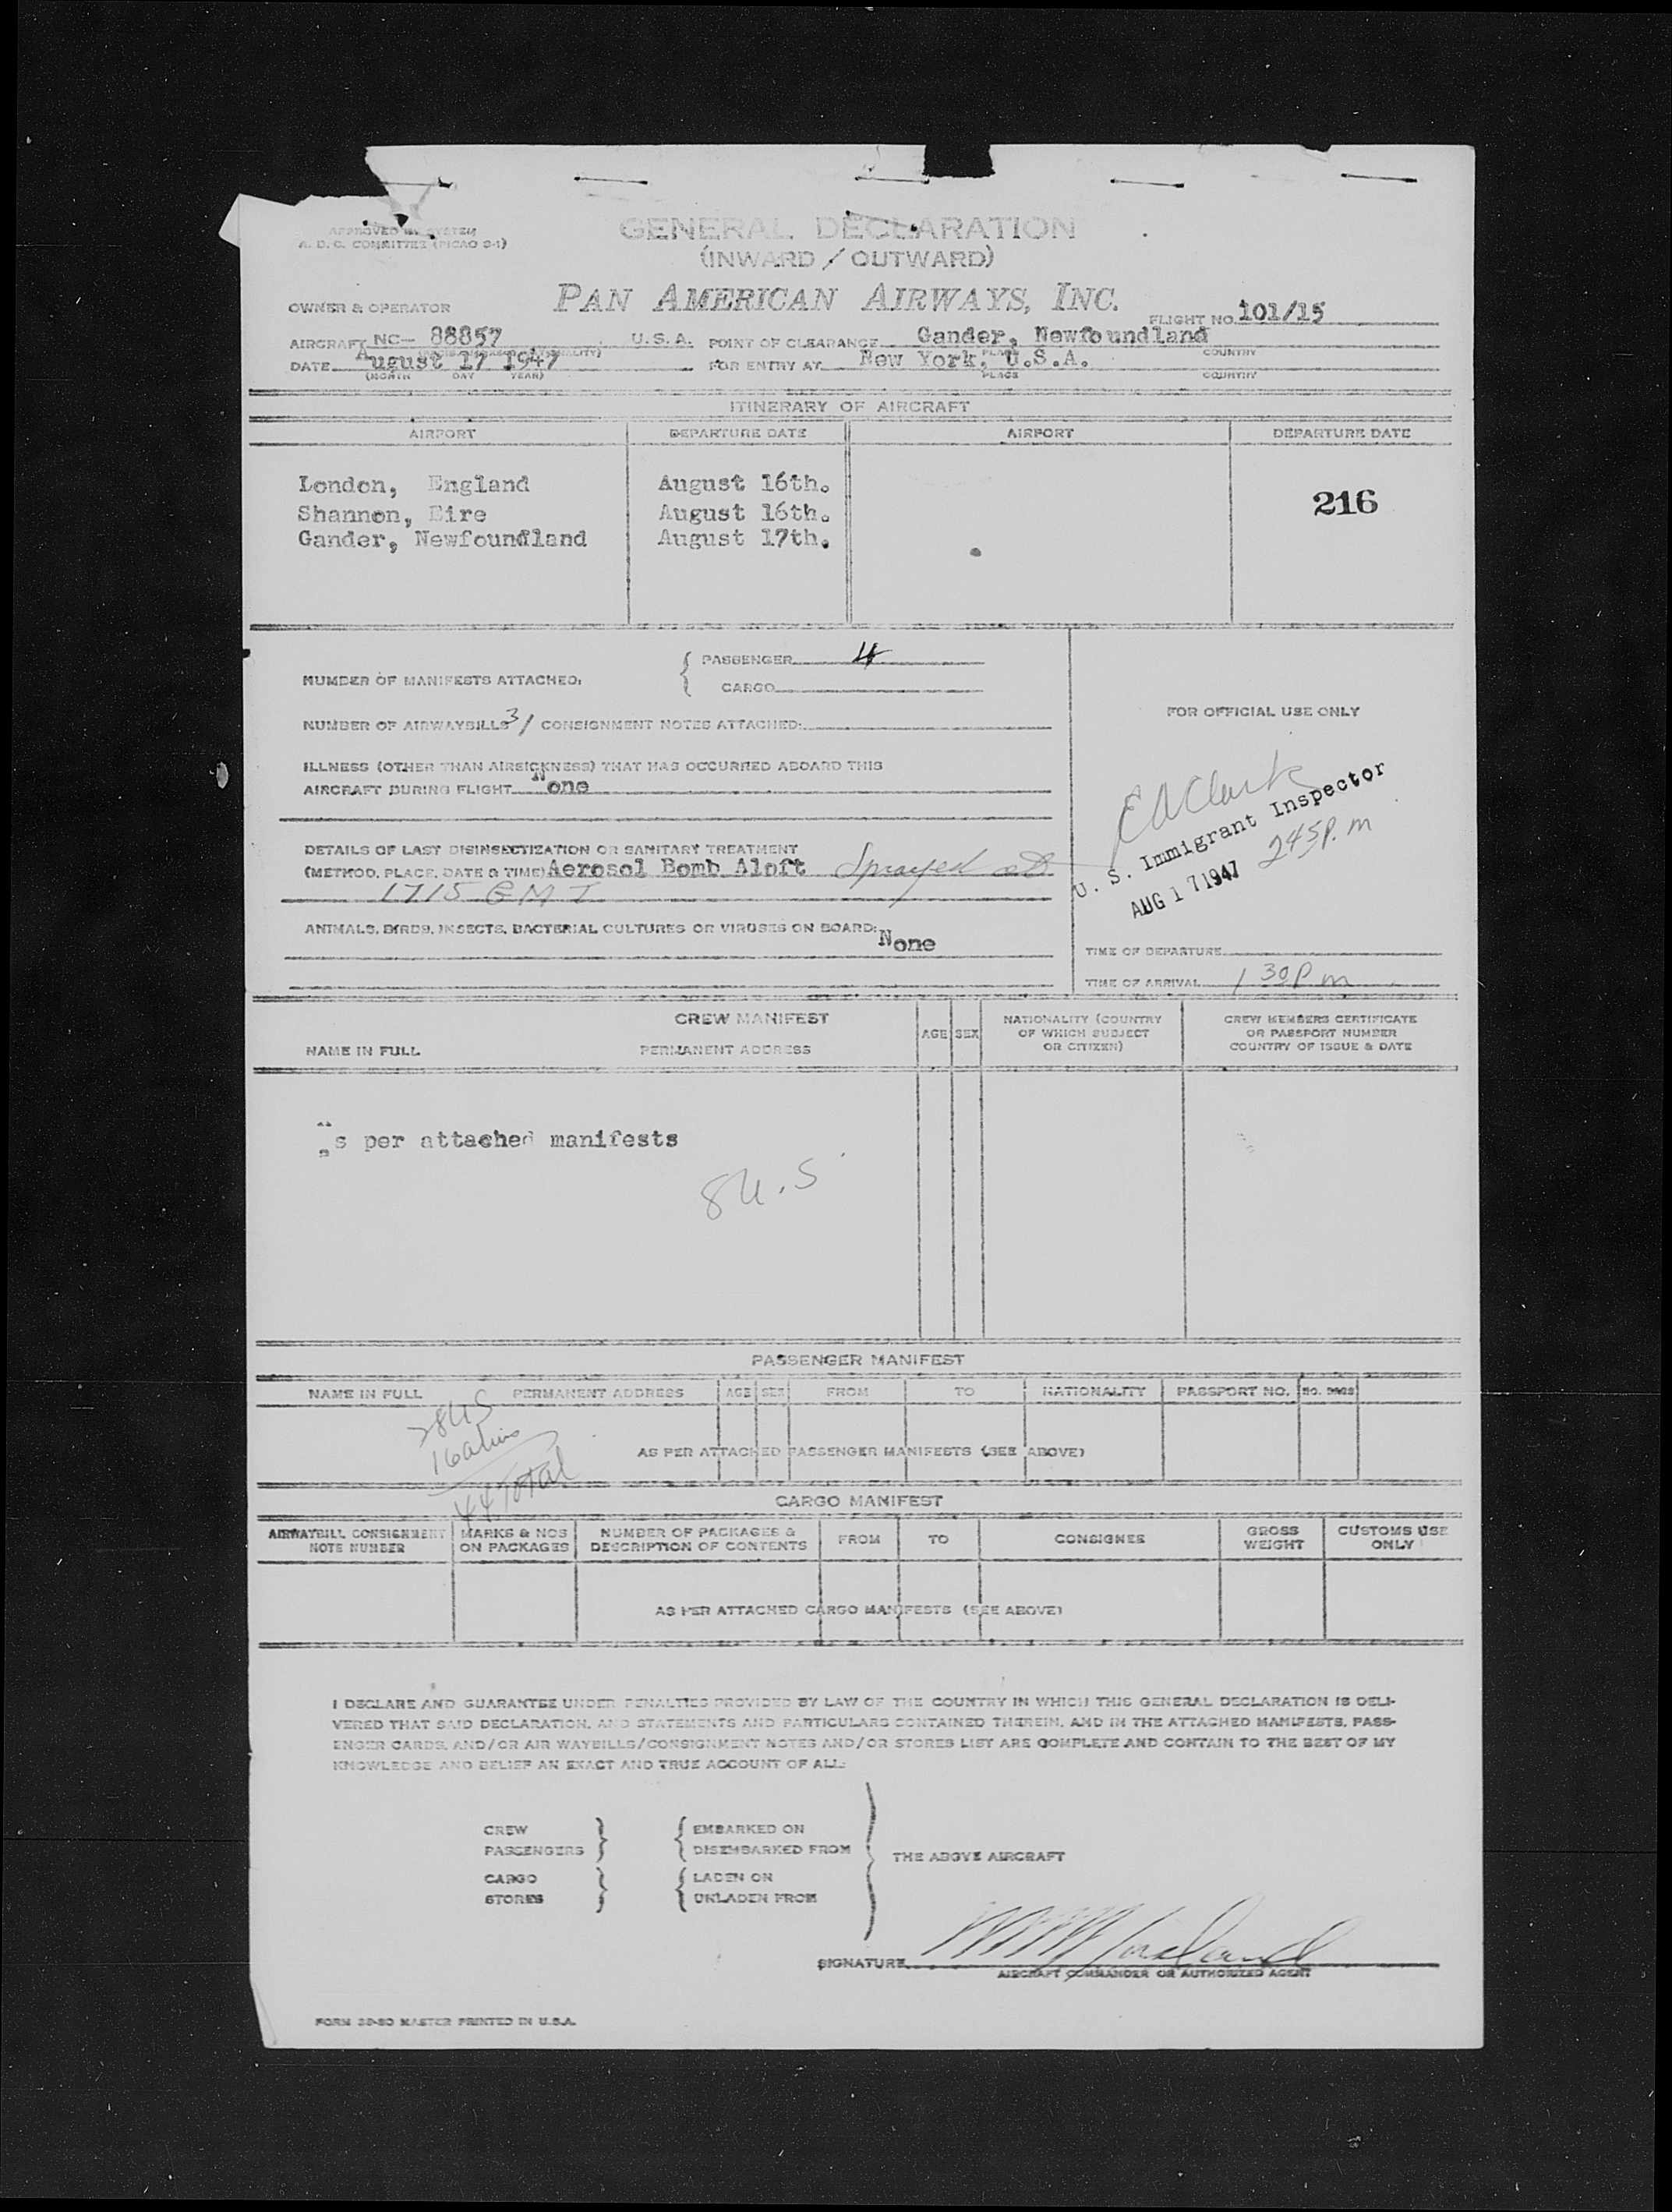 APPROVED BY SYSTEM
A. D. C. COMMITTEE (PICAO 9-1)
GENERAL DECLARATION
(INWARD / OUTWARD)
OWNER & OPERATOR
PAN AMERICAN AIRWAYS, INC.
FLIGHT NO. 101/15
AIRCRAFT NC- 88857 U.S.A. POINT OF CLEARANCE Gander, Newfoundland
DATE August 17 1947 FOR ENTRY AT New York, U.S.A.
(MONTH DAY YEAR) PLACE COUNTRY
ITINERARY OF AIRCRAFT
AIRPORT DEPARTURE DATE AIRPORT DEPARTURE DATE
London, England August 16th.
216
Shannon, Eire August 16th.
Gander, Newfoundland August 17th.
NUMBER OF MANIFESTS ATTACHED: PASSENGER 4
CARGO
NUMBER OF AIRWAYBILLS 3/ CONSIGNMENT NOTES ATTACHED:
ILLNESS (OTHER THAN AIRSICKNESS) THAT HAS OCCURRED ABOARD THIS
AIRCRAFT DURING FLIGHT None
DETAILS OF LAST DISINSECTIZATION OR SANITARY TREATMENT
(METHOD, PLACE, DATE & TIME) Aerosol Bomb Aloft Sprayed at
1715 GMT
ANIMALS, BIRDS, INSECTS, BACTERIAL CULTURES OR VIRUSES ON BOARD: None
FOR OFFICIAL USE ONLY
E A Clark
U. S. Immigrant Inspector
AUG 17 1947 245 P.m
TIME OF DEPARTURE
TIME OF ARRIVAL 1 30 P m
CREW MANIFEST
NAME IN FULL PERMANENT ADDRESS AGE SEX NATIONALITY (COUNTRY
OF WHICH SUBJECT
OR CITIZEN)
CREW MEMBERS CERTIFICATE
OR PASSPORT NUMBER
COUNTRY OF ISSUE & DATE
As per attached manifests
8U.S
PASSENGER MANIFEST
NAME IN FULL PERMANENT ADDRESS AGE SEX FROM TO NATIONALITY PASSPORT NO. NO. BAGS
28US
16 aliens
44 Total
AS PER ATTACHED PASSENGER MANIFESTS (SEE ABOVE)
CARGO MANIFEST
AIRWAYBILL CONSIGNMENT
NOTE NUMBER
MARKS & NOS
ON PACKAGES
NUMBER OF PACKAGES &
DESCRIPTION OF CONTENTS
FROM TO CONSIGNEE
GROSS
WEIGHT
CUSTOMS USE
ONLY
AS PER ATTACHED CARGO MANIFESTS (SEE ABOVE)
I DECLARE AND GUARANTEE UNDER PENALTIES PROVIDED BY LAW OF THE COUNTRY IN WHICH THIS GENERAL DECLARATION IS DELI-
VERED THAT SAID DECLARATION, AND STATEMENTS AND PARTICULARS CONTAINED THEREIN, AND IN THE ATTACHED MANIFESTS, PASS-
ENGER CARDS, AND/OR AIR WAYBILLS/CONSIGNMENT NOTES AND/OR STORES LIST ARE COMPLETE AND CONTAIN TO THE BEST OF MY
KNOWLEDGE AND BELIEF AN EXACT AND TRUE ACCOUNT OF ALL:
CREW EMBARKED ON
PASSENGERS DISEMBARKED FROM
THE ABOVE AIRCRAFT
CARGO LADEN ON
STORES UNLADEN FROM
SIGNATURE
AIRCRAFT COMMANDER OR AUTHORIZED AGENT
FORM 38-80 MASTER PRINTED IN U.S.A.